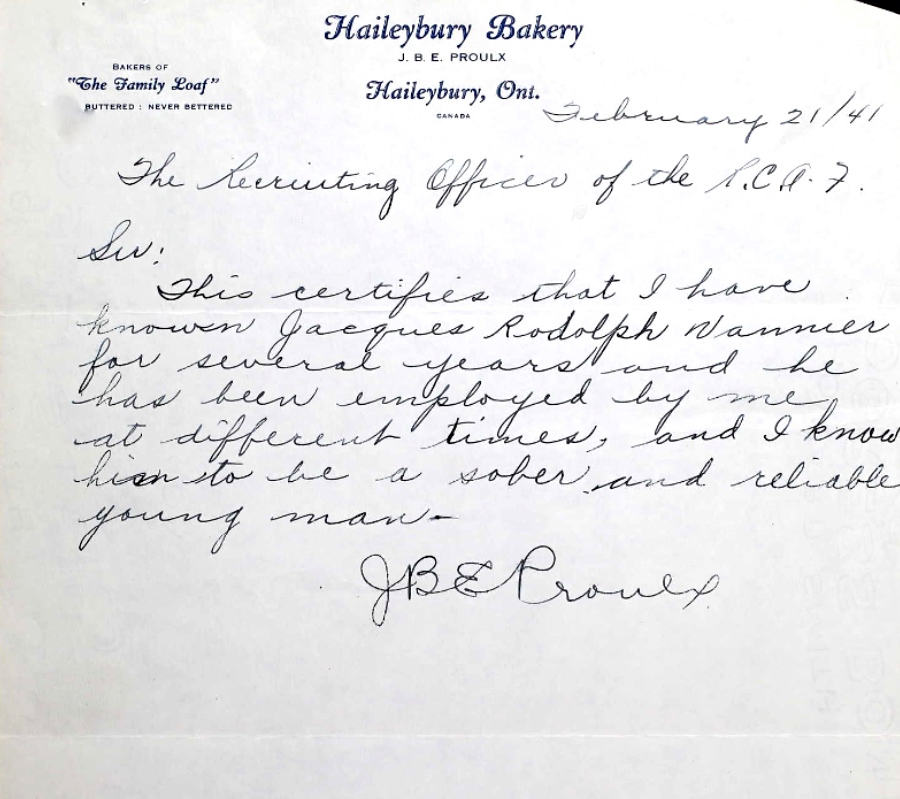 Haileybury Bakery
J. B. E. PROULX
BAKERS OF
"The Family Loaf"
BUTTERED : NEVER BETTERED
Haileybury, Ont.
CANADA
February 21/41
The Recruiting Officer of the R.C.A.F.
Sir:
This certifies that I have
known Jacques Rodolph Vannier
for several years and he
has been employed by me
at different times, and I know
him to be a sober and reliable
young man-
JBE Proulx